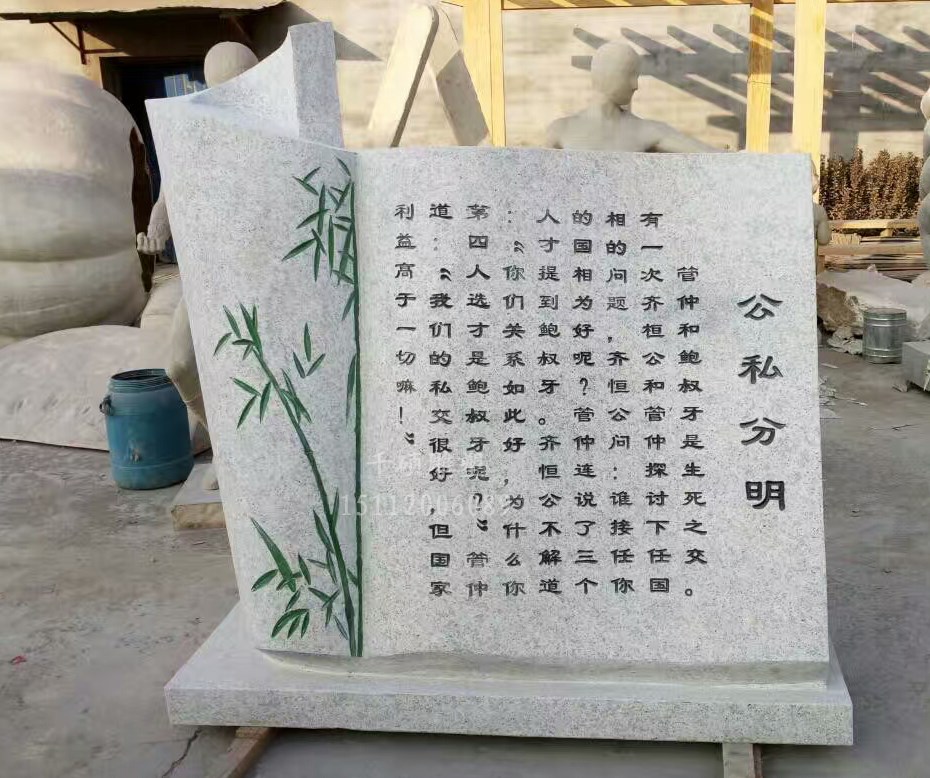 公私分明
管仲和鲍叔牙是生死之交。
有一次齐桓公和管仲探讨下任国
相的问题,齐恒公问:谁接任你
的国相为好呢?管仲连说了三个
人才提到鲍叔牙。齐恒公不解道
:“你们关系如此好,为什么你
第四人选才是鲍叔牙呢。”管仲
道:“我们的私交很好 但国家
利益高于一切嘛!”